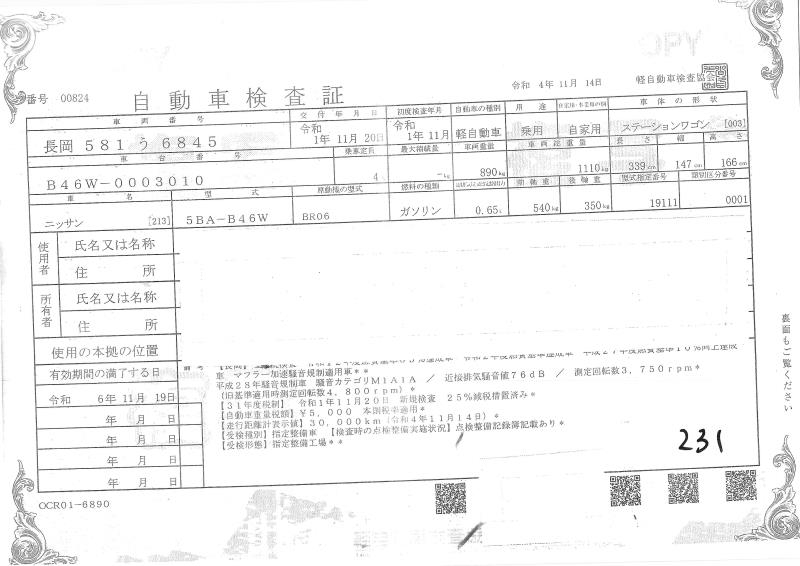 COPY
番号 00824
自動車検査証
令和 4年11月14日 軽自動車検査協会
車両番号 交付年月日 初度検査年月 自動車の種別 用途 自家用・事業用の別 車体の形状
長岡 581 う 6845 令和 1年11月20日 令和 1年11月 軽自動車 乗用 自家用 ステーションワゴン [003]
車台番号 乗車定員 最大積載量 車両重量 車両総重量 長さ 幅 高さ
B46W-0003010 4 -kg 890kg 1110kg 339cm 147cm 166cm
車名 型式 原動機の型式 燃料の種類 前軸重 後軸重 型式指定番号 類別区分番号
ニッサン [213] 5BA-B46W BR06 ガソリン 0.65L 540kg 350kg 19111 0001
使用者 氏名又は名称
住所
所有者 氏名又は名称
住所
使用の本拠の位置
有効期間の満了する日
令和 6年11月19日
年 月 日
年 月 日
年 月 日
年 月 日
車 マフラー加速騒音規制適用車**
平成28年騒音規制車 騒音カテゴリM1A1A / 近接排気騒音値76dB / 測定回転数3,750rpm**
(旧基準適用時測定回転数4,800rpm)*
【31年度税制】 令和1年11月20日 新規検査 25%減税措置済み*
【自動車重量税額】¥5,000 本則税率適用*
【走行距離計表示値】30,000km(令和4年11月14日)*
【受検種別】指定整備車 【検査時の点検整備実施状況】点検整備記録簿記載あり*
【受検形態】指定整備工場**
231
裏面もご覧ください
OCR01-6890